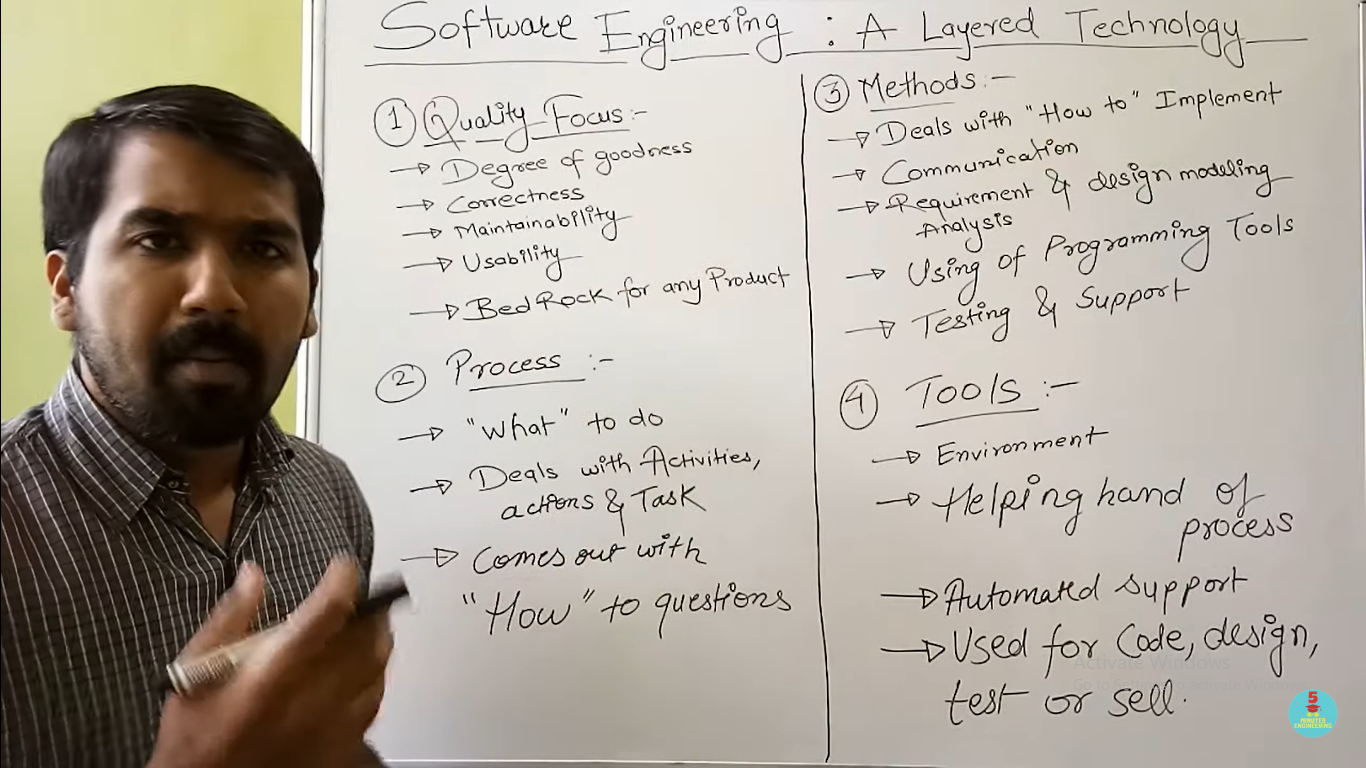 Software Engineering : A Layered Technology
① Quality Focus :-
→ Degree of goodness
→ Correctness
→ Maintainability
→ Usability
→ Bed Rock for any Product
② Process :-
→ "What" to do
→ Deals with Activities,
actions & Task
→ Comes out with
"How" to questions
③ Methods :-
→ Deals with "How to" Implement
→ Communication
→ Requirement & design modeling
Analysis
→ Using of Programming Tools
→ Testing & Support
④ TOOLS :-
→ Environment
→ Helping hand of
process
→ Automated support
→ Used for Code, design,
test or sell.
Activate Windows
Go to Settings to activate Windows.
5
MINUTES
ENGINEERING